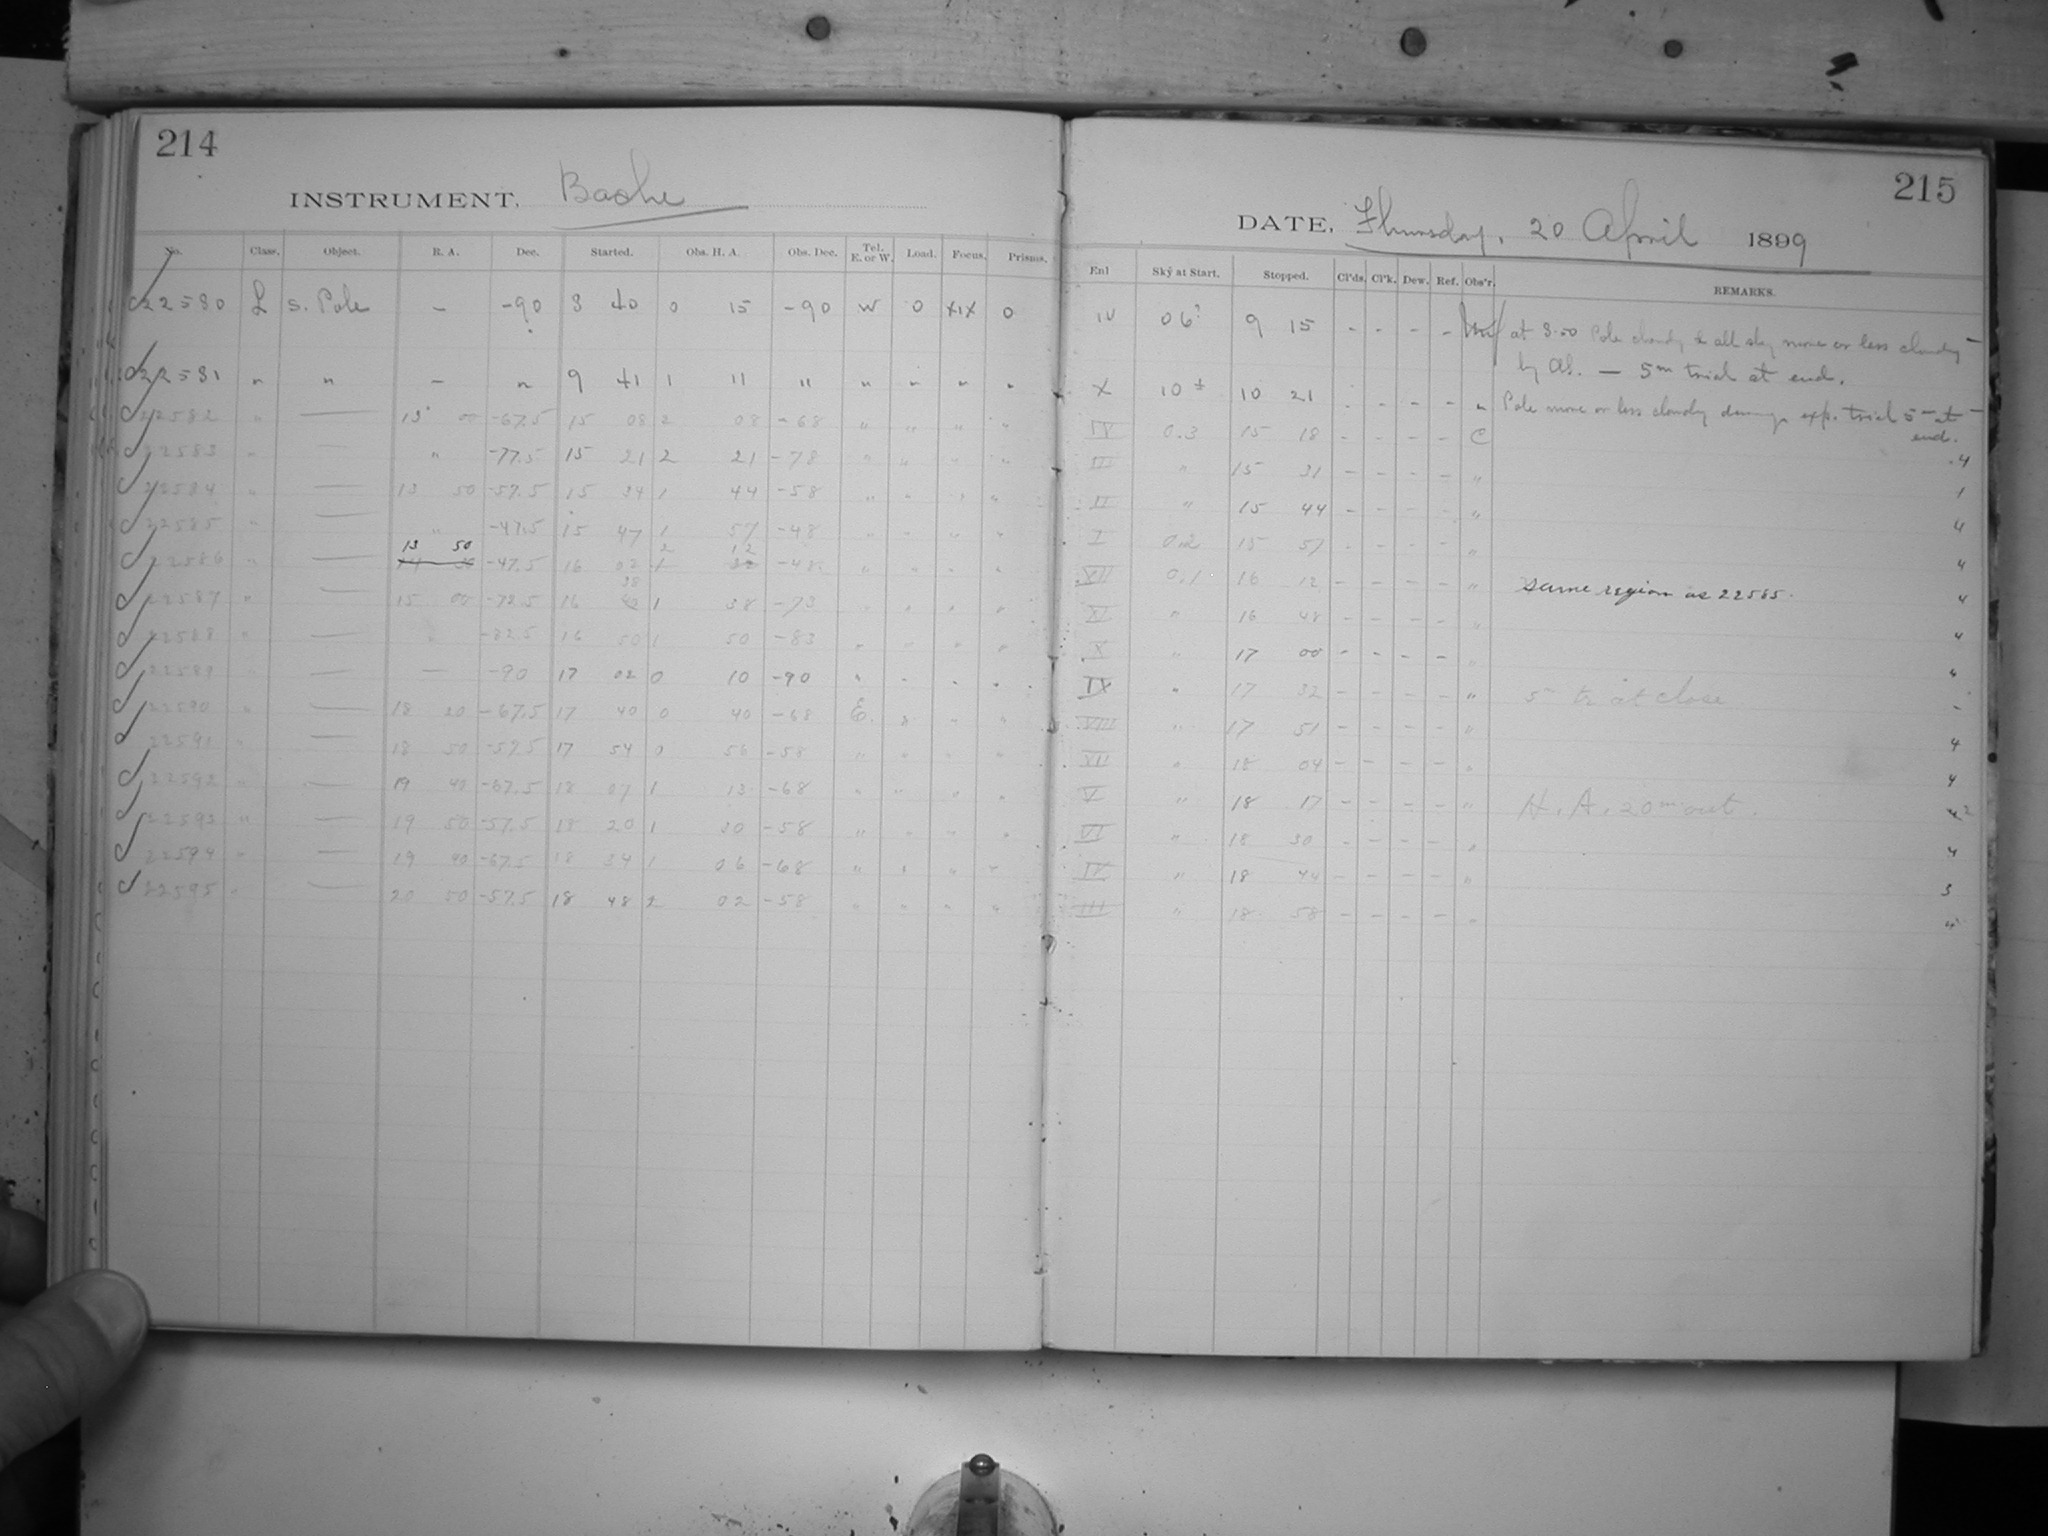 214
INSTRUMENT. Bache
No. Class. Object. R. A. Dec. Started. Obs. H. A. Obs. Dec. Tel. E. or W. Load. Focus. Prisms.
C22580 L S. Pole – -90 8 40 0 15 -90 W 0 XIX 0
C22581 " " – " 9 41 1 11 " " " " "
C22582 " — 13 00 -67.5 15 08 2 08 -68 " " " "
C22583 " — " -77.5 15 21 2 21 -78 " " " "
C22584 " — 13 50 -57.5 15 34 1 44 -58 " " " "
C22585 " — " -47.5 15 47 1 57 -48 " " " "
13 50 2 12
C22586 " — -47.5 16 02 1 32 -48 " " " "
38
C22587 " — 15 00 -72.5 16 1 38 -73 " " " "
C22588 " — " -82.5 16 50 1 50 -83 " " " "
C22589 — — -90 17 02 0 10 -90 " " " "
C22590 " — 18 20 -67.5 17 40 0 40 -68 E. " " "
C22591 " — 18 50 -57.5 17 54 0 56 -58 " " " "
C22592 — 19 40 -67.5 18 07 1 13 -68 " " " "
C22593 " — 19 50 -57.5 18 20 1 30 -58 " " " "
C22594 " — 19 40 -67.5 18 34 1 06 -68 " " " "
C22595 " — 20 50 -57.5 18 48 2 02 -58 " " " "
215
DATE. Thursday, 20 April 1899
Enl Sky at Start. Stopped. Cl'ds. Cl'k. Dew. Ref. Obs'r. REMARKS.
IV 06? 9 15 – – – – at 8.50 Pole cloudy & all sky more or less cloudy –
by Obs. — 5m trial at end.
X 10± 10 21 – – – – " Pole more or less cloudy during exp. trial 5m at –
end.
IV 0.3 15 18 – – – – C
III " 15 31 – – – – " 4
II " 15 44 – – – – " 1
I 0.2 15 57 – – – – " 4
XII 0.1 16 12 – – – – " same region as 22585. 4
XI " 16 48 – – – – " 4
X " 17 00 – – – – " 4
IX " 17 32 – – – – " 5m tr at close
VIII " 17 51 – – – – " –
VII " 18 04 – – – – " 4
V " 18 17 – – – – " H. A. 20m out. 4
VI " 18 30 – – – – "
IV " 18 44 – – – – " 4
III " 18 58 – – – – " 3
4